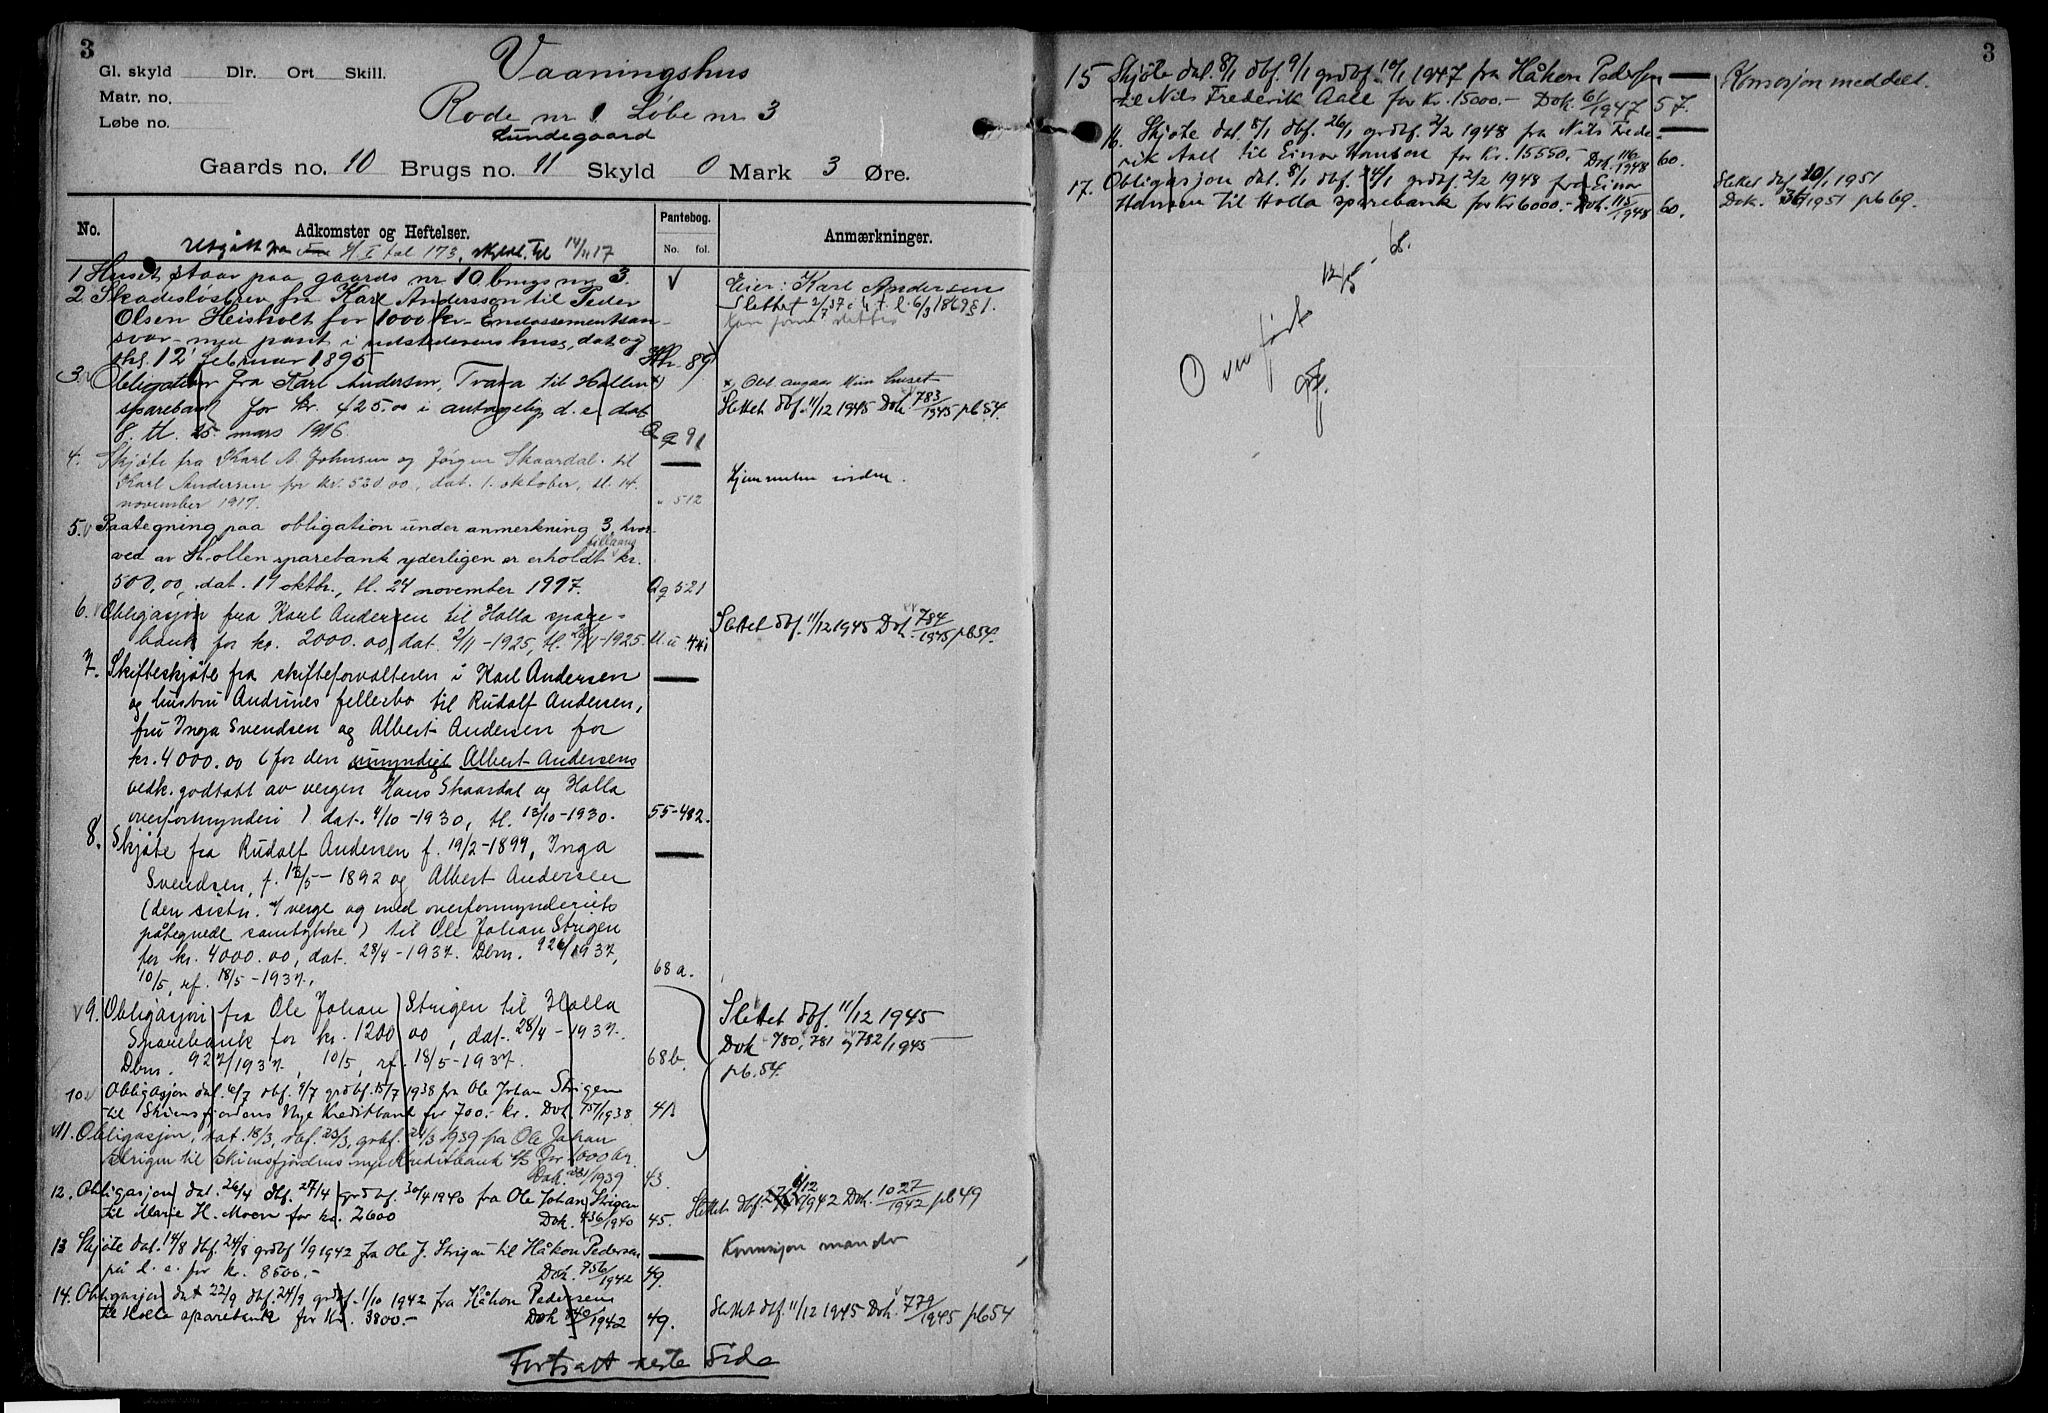 3
Gl. skyld Dlr. Ort Skill.
Matr. no.
Løbe no.
Vaaningshus
Rode nr 1 Løbe nr 3
Lundegaard
Gaards no. 10 Brugs no. 11 Skyld 0 Mark 3 Øre.
No. Adkomster og Heftelser. Pantebog. No. fol. Anmærkninger.
Utgått fra I fol 173, skyldd. tl. 14/11 17
1 Huset staar paa gaards nr 10 brugs nr 3. Eier: Karl Andersen
2 Skadesløsbrev fra Karl Andersson til Peder Slettet 2/7 37 i h. t. l. 6/3 1869 § 1.
Olsen Heisholt for 1000 kr - Endossementsan-
svar - med pant i udstederens huse, dat og
thl. 12 februar 1895 89
3. Obligation fra Karl Andersen, Tvara til Hollen x) Obl. angaar kun huset
sparebank for kr. 425.00 i antagelig d. e. dat Slettet dbf. 11/12 1945 Dok. 783/1945 pb 54.
8. tl. 25. mars 1916. Q q 91
4. Skjøte fra Karl A. Johnsen og Jørgen Skaardal til
Karl Andersen for kr. 520.00, dat. 1. oktober, tl. 14. Hjemmelen iorden.
november 1917. " 512
5. Paategning paa obligation under anmerkning 3, hvor-
ved av Hollen sparebank yderligen er erholdt tillaans kr.
500,00, dat. 17 oktbr., tl. 24 november 1917. Qq 521
6. Obligasjon fra Karl Andersen til Holla spare- Slettet dbf. 11/12 1945 Dok. 784/1945 pb 54.
bank for kr. 2000.00 dat. 2/11-1925, tl. 11-1925.
7. Skifteskjøte fra skifteforvalteren i Karl Andersen
og hustru Andrines fellesbo til Rudolf Andersen,
fru Inga Svendsen og Albert Andersen for
kr. 4000.00 (for den umyndige Albert Andersens
vedk. godtatt av vergen Hans Skaardal og Holla
overformynderi) dat. 4/10-1930, tl. 13/10-1930. 55-482.
8. Skjøte fra Rudolf Andersen f. 19/2-1899, Inga
Svendsen, f. 12/5-1892 og Albert Andersen
(den sistn. v/ verge og med overformynderiets
påtegnede samtykke) til Ole Johan Strigen
for kr. 4000.00, dat. 28/4-1937. Dbm. 926/1937,
10/5, rf. 18/5-1937. 68 a.
9. Obligasjon fra Ole Johan Strigen til Holla Slettet dbf. 11/12 1945
Sparebank for kr. 1200 00, dat. 28/4-1937. Dok 780, 781 og 782/1945
Dbm. 927/1937, 10/5, rf. 18/5-1937. 68 b. pb. 54.
10. Obligasjon dat. 6/7 dbf. 9/7 grdbf. 15/7 1938 fra Ole Johan Strigen
til Skiensfjordens Nye Kreditbank for 700.- kr. Dok. 757/1938. 41.
11. Obligasjon, dat. 18/3, dbf. 23/3, gdbf. 24/3 1939 fra Ole Johan
Strigen til Skiensfjordens nye Kreditbank for 1000 kr.
Dok. 1939 43.
12. Obligasjon dat. 26/4 dbf. 27/4 grdbf. 30/4 1940 fra Ole Johan Strigen Slettet dbf. 12 1942 Dok. 1027/1942 pb 49
til Marie H. Moen for kr. 2600 Dok. 436/1940 45.
13 Skjøte dat. 14/8 dbf. 24/8 grdbf 1/9 1942 fra Ole J. Strigen til Håkon Pedersen
på l. e. for kr. 8500.- Dok. 756/1942 49.
14. Obligasjon dat 22/9 dbf. 24/9 grdbf. 1/10 1942 fra Håkon Pedersen Slettet dbf. 11/12 1945 Dok. 779/1945 pb 54
til Holla sparebank for Kr. 3800.- Dok 840/1942 49.
Fortsatt neste Side
3
15 Skjøte dat. 8/1 dbf. 9/1 grdbf. 10/1 1947 fra Håkon Pedersen Konsesjon meddelt.
til Nils Frederik Aall for Kr. 15000.- Dok. 61/1947 57.
16. Skjøte dat. 5/1 dbf. 26/1 grdbf. 2/2 1948 fra Nils Frede-
rik Aall til Einar Hansen for Kr. 15550.- Dok. 116/1948 60.
17. Obligasjon dat. 8/1 dbf. 24/1 grdbf. 2/2 1948 fra Einar Slettet dbf 20/1 1951
Hansen til Holla sparebank for Kr 6000.- Dok. 115/1948 60. Dok. 1951 pb 69.
Overført